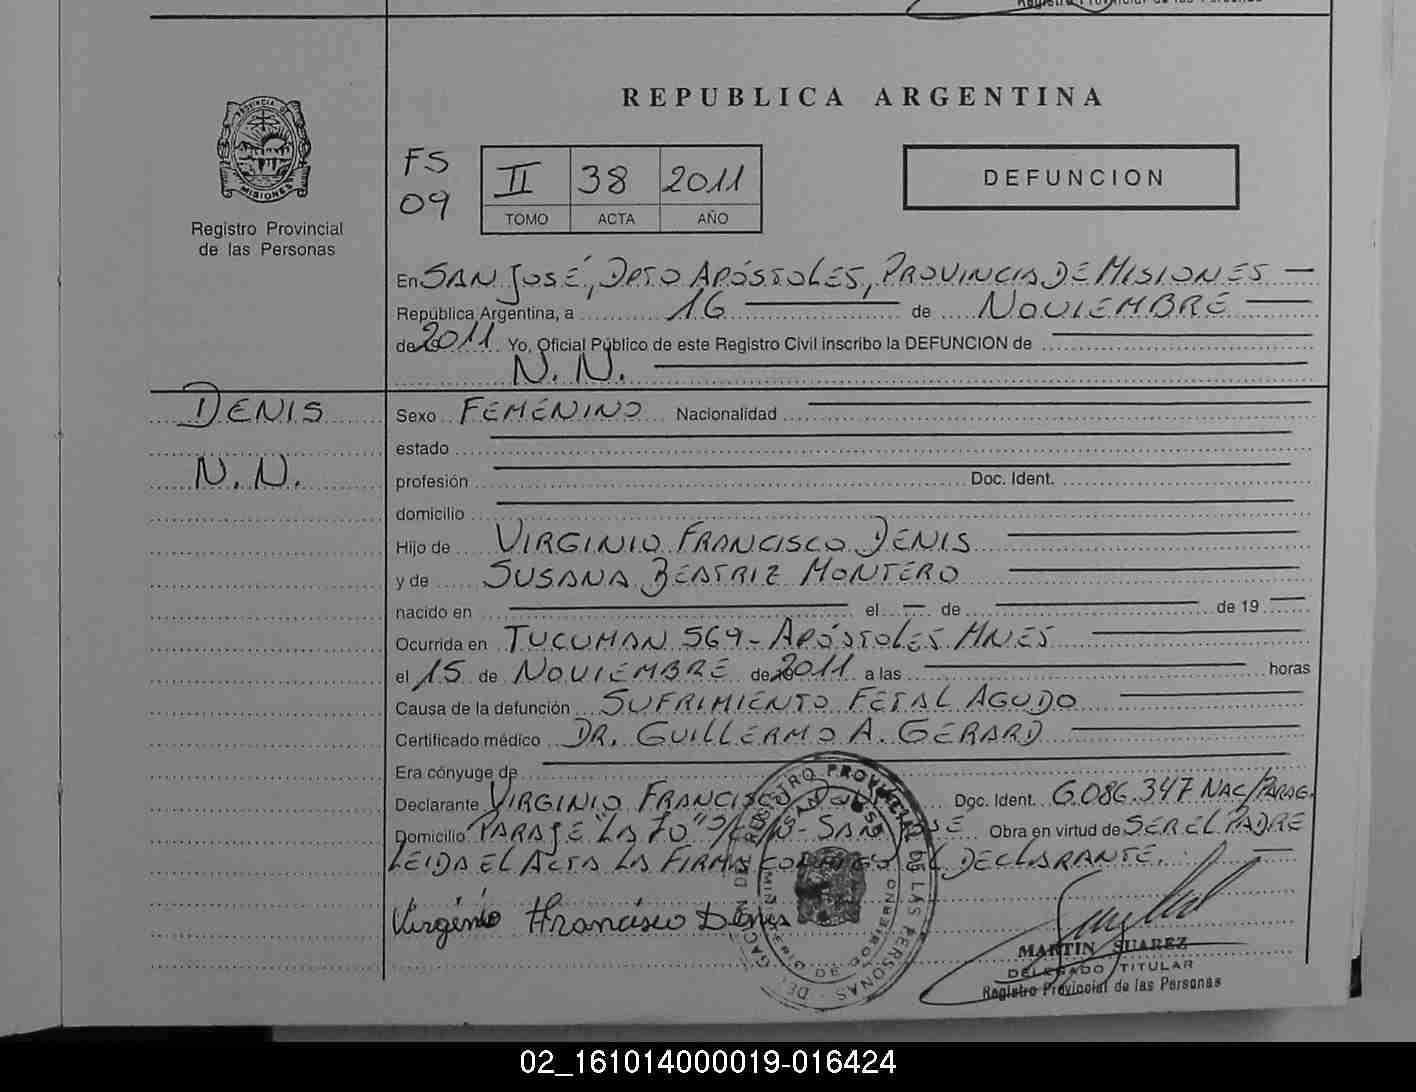 Registro Provincial de las Personas
REPUBLICA ARGENTINA
PROVINCIA DE
MISIONES
Registro Provincial
de las Personas
FS
09
II 38 2011
TOMO ACTA AÑO
DEFUNCION
En SAN JOSÉ, DPTO APÓSTOLES, PROVINCIA DE MISIONES
República Argentina, a 16 de NOVIEMBRE
de 2011 Yo, Oficial Público de este Registro Civil inscribo la DEFUNCION de
N.N.
DENIS
N.N.
Sexo FEMENINO Nacionalidad
estado
profesión Doc. Ident.
domicilio
Hijo de VIRGINIO FRANCISCO DENIS
y de SUSANA BEATRIZ MONTERO
nacido en el de de 19
Ocurrida en TUCUMAN 569 - APÓSTOLES MNES
el 15 de NOVIEMBRE de 2011 a las horas
Causa de la defunción SUFRIMIENTO FETAL AGUDO
Certificado médico DR. GUILLERMO A. GERARD
Era cónyuge de
Declarante VIRGINIO FRANCISCO DENIS Doc. Ident. 6.086.347 NAC/PARAG.
Domicilio PARAJE "LA 70" S/C N - SAN JOSE Obra en virtud de SER EL PADRE
LEIDA EL ACTA LA FIRMA CONMIGO EL DECLARANTE.
Virginio Francisco Denis
DELEGACION DEL REGISTRO PROVINCIAL DE LAS PERSONAS
SAN JOSE
MINISTERIO DE GOBIERNO
MARTIN SUAREZ
DELEGADO TITULAR
Registro Provincial de las Personas
02_161014000019-016424